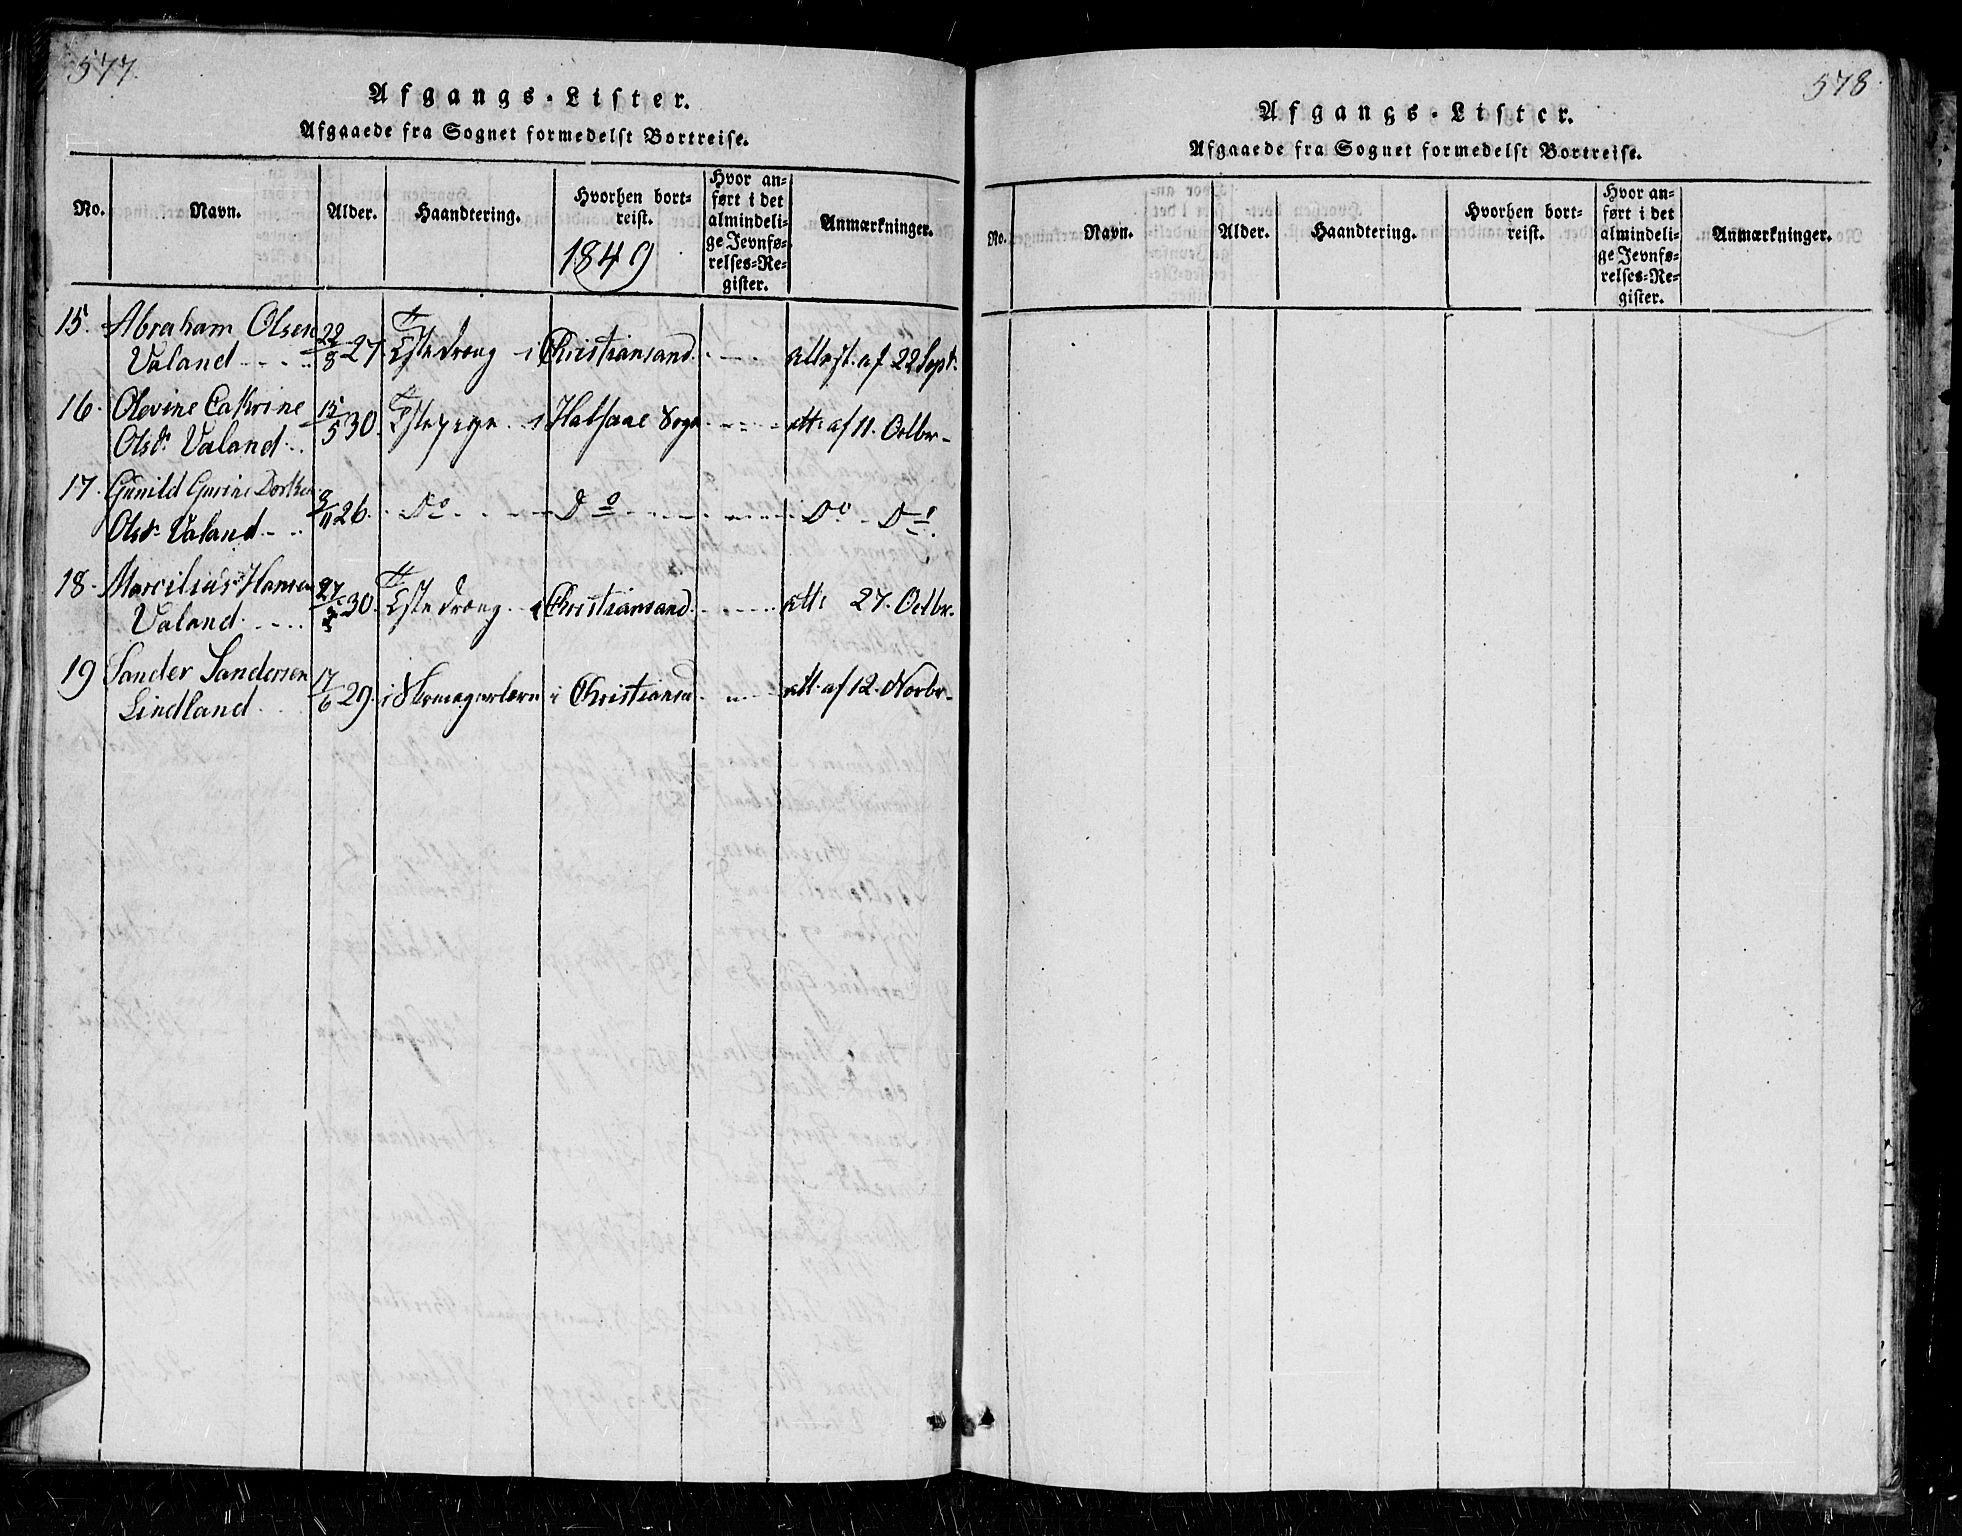 577.
Afgangs-Lister.
Afgaaede fra Sognet formedelst Bortreise.
No.
Navn.
Alder.
Haandtering.
Hvorhen bort-
reist.
1849
Hvor an-
ført i det
almindeli-
ge Jevnfø-
relses-Re-
gister.
Anmærkninger.
15. Abraham Olsen
Valand 22/8 27. Tjstedreng i Christiansand attest. af 22 Sept.
16. Olevine Cathrine 15/5 30.
Olsdr. Valand Tjstepige i Halsaae Sogn att: af 11. Octbr.
17. Gunild Gurine
Olsdr. Valand 26. Do Do Do Do
18. Marcilius Hansen
Valand 27 30. Tjstedreng i Christiansand att: 27. Octbr.
19 Sander Sandersen
Lindland 17/6 29. i Skomagerlære i Christiansd att. af 12. Novbr.
578.
Afgangs-Lister.
Afgaaede fra Sognet formedelst Bortreise.
No.
Navn.
Alder.
Haandtering.
Hvorhen bort-
reist.
Hvor an-
ført i det
almindeli-
ge Jevnfø-
relses-Re-
gister.
Anmærkninger.